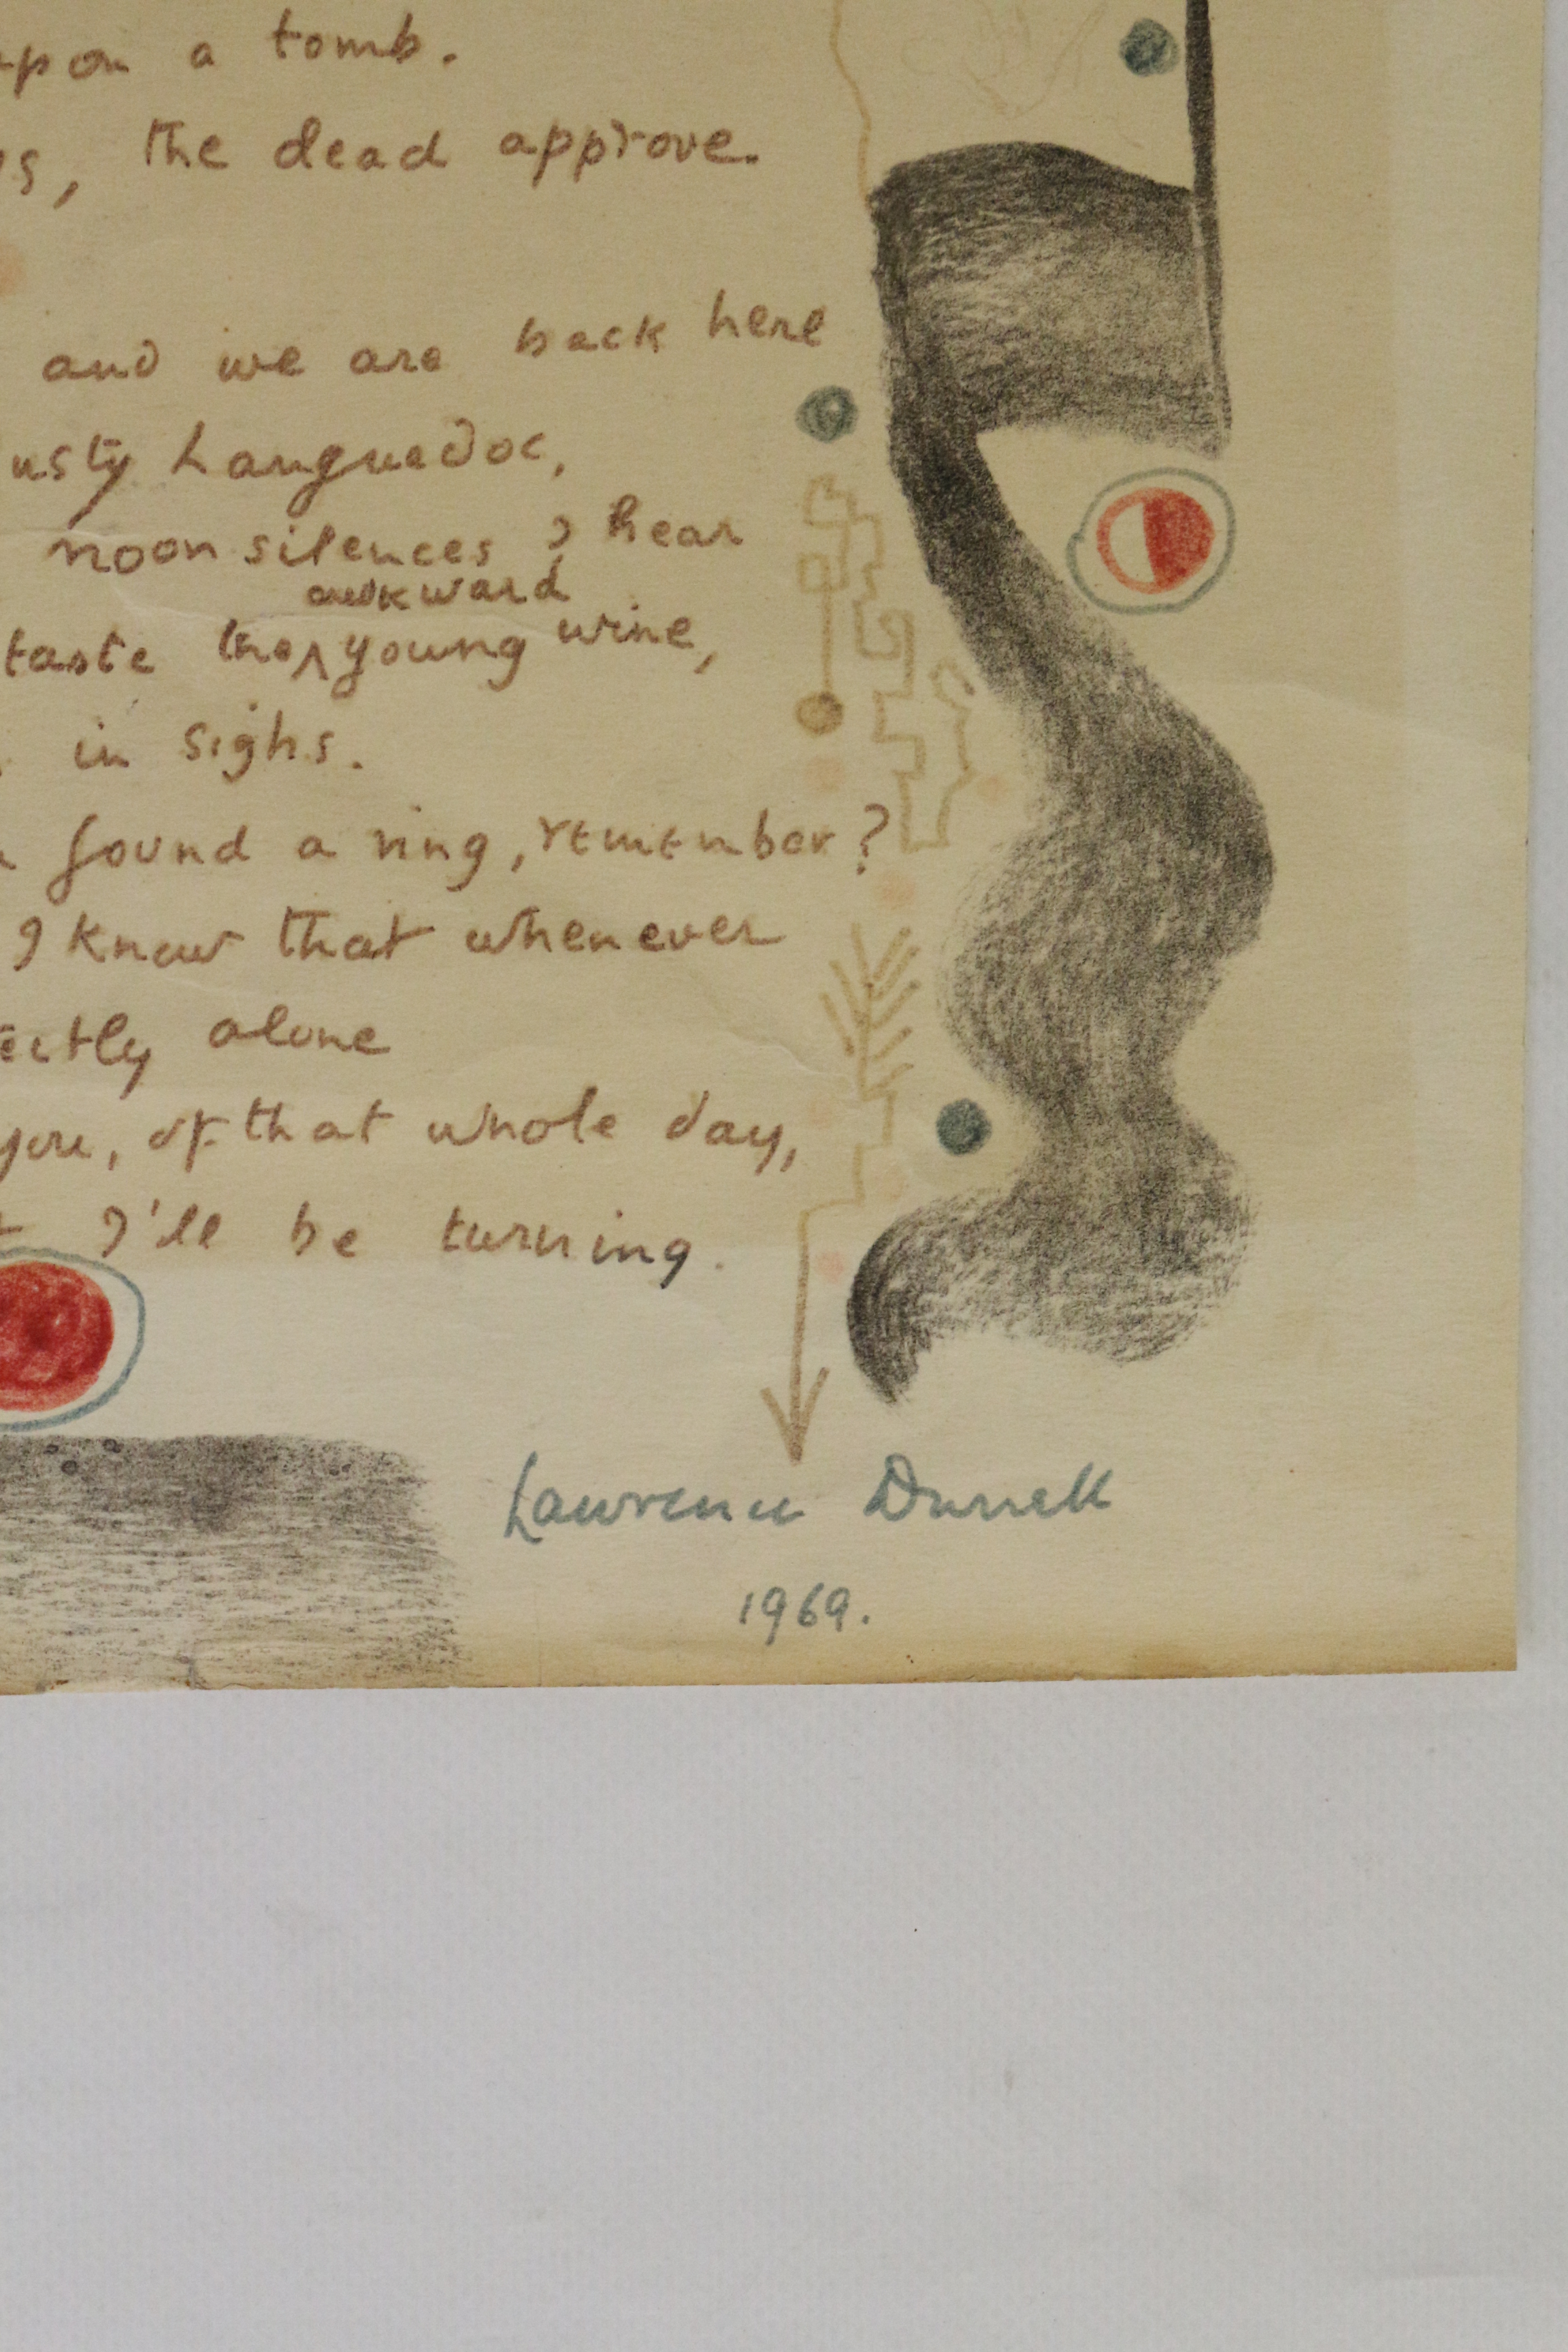 upon a tomb.
s, the dead approve.
and we are back here
usty Languedoc,
noon silences, I hear
awkward
taste the ʌ young wine,
in sighs.
found a ring, remember?
I know that whenever
ectly alone
you, of that whole day,
I'll be turning.
Lawrence Durrell
1969.